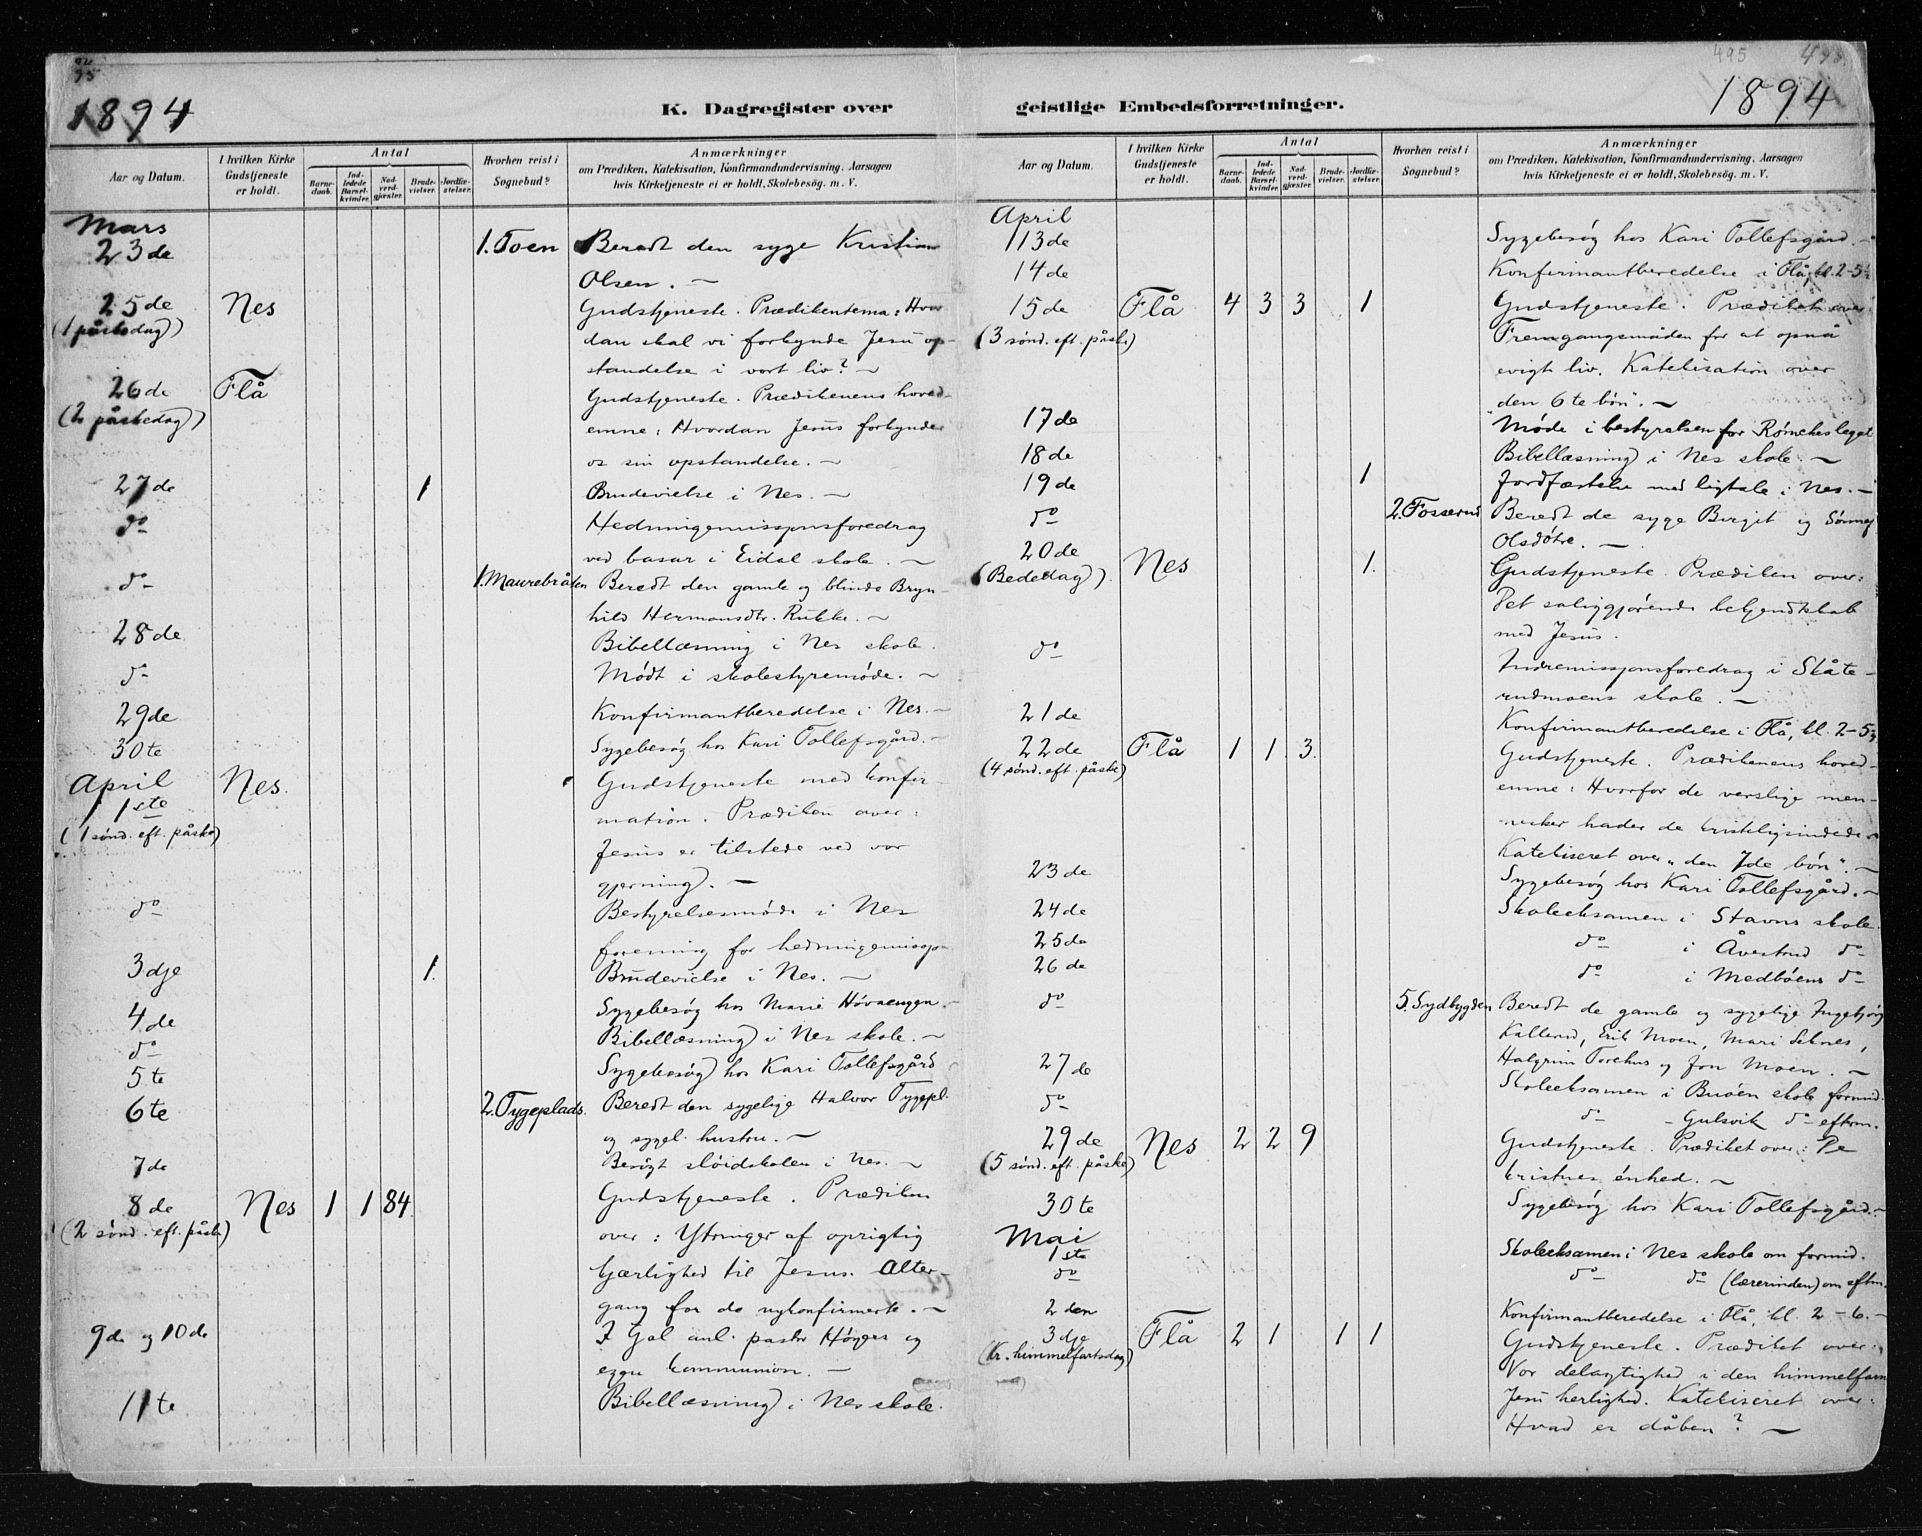 1894
K. Dagregister over
Aar og Datum.
I hvilken Kirke Gudstjeneste er holdt.
Antal
Barnedaab.
Indledede Barselkvinder.
Nadverdgjester.
Brudevielser.
Jordfæstelser.
Hvorhen reist i Sognebud?
Anmærkninger
om Prædiken, Katekisation, Konfirmandundervisning, Aarsagen
hvis Kirketjeneste ei er holdt, Skolebesøg. m. V.
Mars
23de 1. Toen Beredt den syge Kristian
Olsen. —
25de Nes Gudstjeneste. Prædikentema: Hvor
(1 påskedag) dan skal vi forkynde Jesu op-
standelse i vort liv? —
26de Flå Gudstjeneste. Prædikenens hoved-
(2 påskedag) emne: Hvordan Jesus forkynder
os sin opstandelse. —
27de 1 Brudevielse i Nes. —
do Hedningemissjonsforedrag
ved basar i Eidal skole. —
do 1. Maurebråten Beredt den gamle og blinde Bryn-
hild Hermansdtr. Rukke. —
28de Bibellæsning i Nes skole.
do Mødt i skolestyremøde. —
29de Konfirmantberedelse i Nes. —
30te Sygebesøg hos Kari Tollefsgård. —
April
1ste Nes. Gudstjeneste med konfir-
(1 sønd. eft. påske) mation. Prædiken over:
Jesus er tilstede ved vor
gjerning. —
do Bestyrelsesmøde i Nes
forening for hedningemissjon
3dje 1. Brudevielse i Nes. —
Sygebesøg hos Marie Høvaengen. —
4de Bibellæsning i Nes skole. —
do
5te Sygebesøg hos Kari Tollefsgård
6te 2. Tygeplads. Beredt den sygelige Halvor Tygepl.
og sygel. hustru. —
7de Besøgt sløidskolen i Nes. —
8de Nes 1 1 84. Gudstjeneste. Prædiken
(2 sønd. eft. påske) over: Ytringer af oprigtig
kjærlighed til Jesus. Alter-
gang for de nykonfirmerte. —
9de og 10de I Gal anl. pastor Høyers og
egen kommunion. —
11te Bibellæsning i Nes skole.
495
1894
geistlige Embedsforretninger.
Aar og Datum.
I hvilken Kirke Gudstjeneste er holdt.
Antal
Barnedaab.
Indledede Barselkvinder.
Nadverdgjester.
Brudevielser.
Jordfæstelser.
Hvorhen reist i Sognebud?
Anmærkninger
om Prædiken, Katekisation, Konfirmandundervisning, Aarsagen
hvis Kirketjeneste ei er holdt, Skolebesøg. m. V.
April
13de Sygebesøg hos Kari Tollefsgård. —
14de Konfirmantberedelse i Flå, kl. 2-5½
15de Flå 4 3 3 1 Gudstjeneste. Prædiket over:
(3 sønd. eft. påske) Fremgangsmåden for at opnå
evigt liv. Katekisation over
„den 6te bøn". —
17de Møde i bestyrelsen for Rømckeslegat
18de Bibellæsning i Nes skole. —
19de 1 Jordfæstelse med ligtale i Nes. —
do 2. Fosserud Beredt de syge Birgit og Sønnøj
Olsdøtre. —
20de Nes 1. Gudstjeneste. Prædiken over:
(Bededag). Det saliggjørende bekjendtskab
med Jesus.
do Indremissjonsforedrag i Skåte-
rudmoens skole. —
21de Konfirmantberedelse i Flå, kl. 2-5½
22de Flå 1 1 3. Gudstjeneste. Prædikenens hoved-
(4 sønd. eft. påske) emne: Hvorfor de verslige men-
nesker hader de kristeligsindede.
Katekiseret over „den 7de bøn". —
23de Sygebesøg hos Kari Tollefsgård. —
24de Skoleeksamen i Stavns skole.
25de do i Åvestrud do
26de do i Medbøens do
do 5. Sydbygden Beredt de gamle og sygelige Ingebjørg
Kallerud, Erik Moen, Mari Seknes,
Halgrim Torehus og Jon Moen. —
27de Skoleeksamen i Buøen skole formid.
do do - Gulsvik do eftrm.
29de Nes 2 2 9 Gudstjeneste. Prædiket over: De
(5 sønd. eft. påske) kristnes énhed. —
30te Sygebesøg hos Kari Tollefsgård. —
Mai
1ste Skoleeksamen i Nes skole om formid.
do do do (lærerinden) om eftm.
2den Konfirmantberedelse i Flå, kl. 2-6. —
3dje Flå 2 1 1 1 Gudstjeneste. Prædiket over:
(Kr. himmelfartsdag) Vor delagtighed i den himmelfarne
Jesu herlighed. Katekiseret over:
Hvad er dåben? —